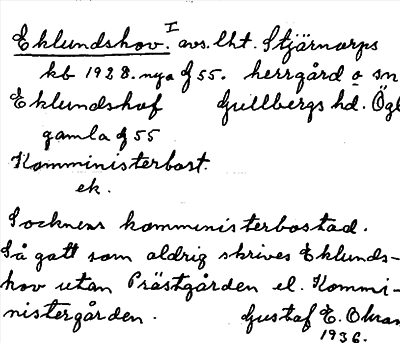 I
Eklundshov. avs. lht. Stjärnorps
kb 1928. nya J 55. herrgård o sn
Eklundshof Gullbergs hd. Ögl
gamla J 55
Komministerbost.
ek.
Socknens komministerbostad.
Så gott som aldrig skrives Eklunds-
hov utan Prästgården el. Kommi-
nistergården. Gustaf E.
1936.